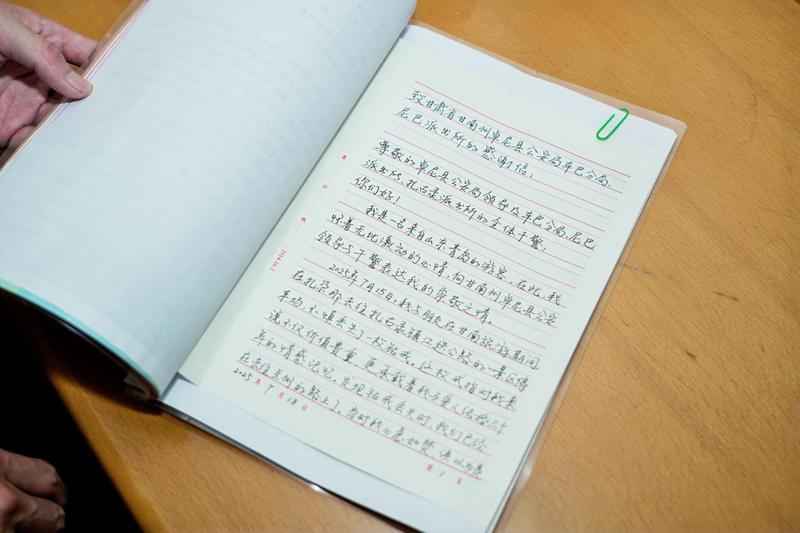 致甘肃省甘南州卓尼县公安局车巴分局、
尼巴派出所的感谢信:
尊敬的卓尼县公安局领导及车巴分局、尼巴
派出所,扎古录派出所的全体干警,
你们好!
我是一名来自山东青岛的游客,在此,我
怀着无比激动的心情,向甘南州卓尼县公安
领导与干警表达我的崇敬之情。
2025年7月15日,我与朋友在甘南旅游期间
在扎尕那去往扎古录镇江迭公路的一景区停
车场,不慎丢失了一枚钻戒。这枚戒指对我来
说不仅价值贵重,更承载着我与爱人结婚二十
年的情感记忆。发现钻戒丢失时,我们已经
在去往兰州的路上了。当时我心急如焚,误以为是
2025年7月18日
第1页